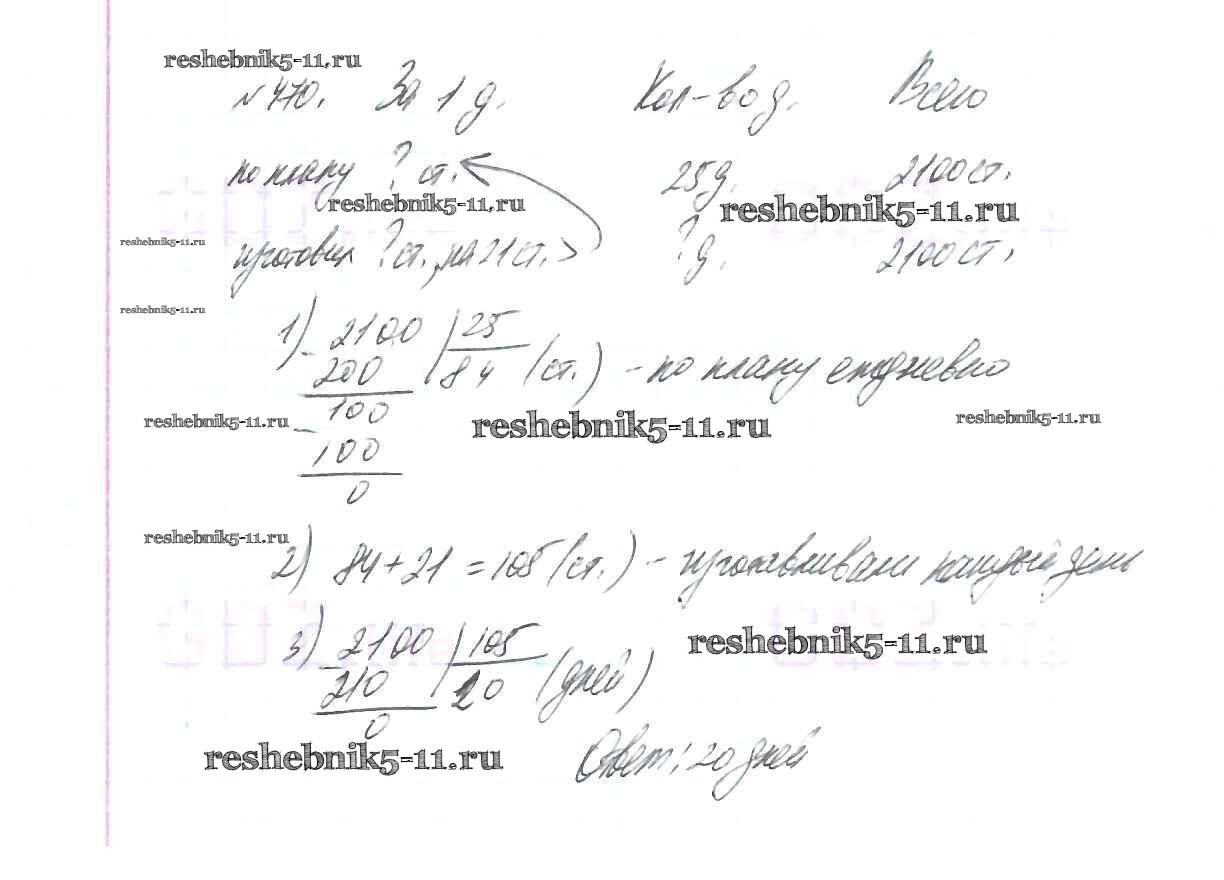 reshebnik5-11.ru
№470. За 1 д. Кол-во д. Всего
по плану ? ст. 25д. 2100ст.
reshebnik5-11.ru reshebnik5-11.ru
reshebnik5-11.ru
изготовил ?ст., на 21 ст. > ? д. 2100ст.
reshebnik5-11.ru
1) - 2100 | 25
200 | 84 (ст.) - по плану ежедневно
reshebnik5-11.ru - 100 reshebnik5-11.ru reshebnik5-11.ru
100
0
reshebnik5-11.ru
2) 84 + 21 = 105 (ст.) - изготавливали каждый день
3) - 2100 | 105 reshebnik5-11.ru
210 | 20 (дней)
0
reshebnik5-11.ru Ответ: 20 дней